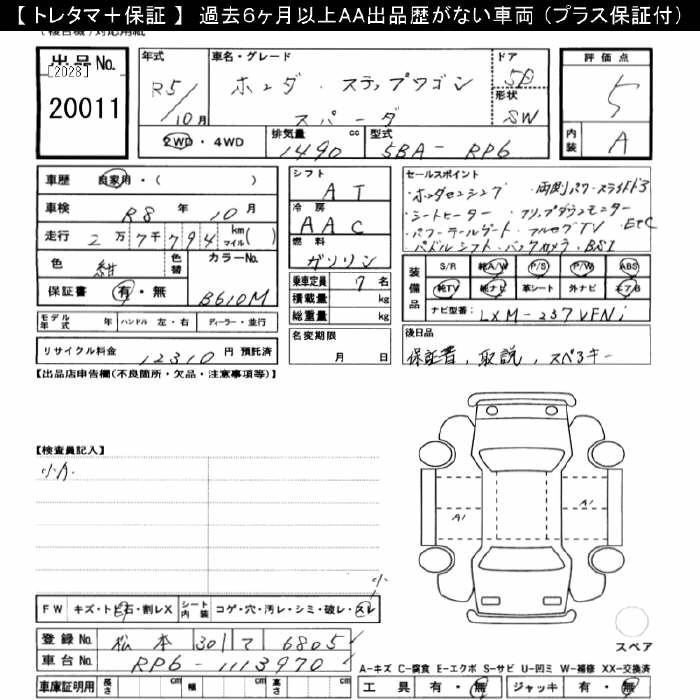 【 トレタマ＋保証 】 過去６ヶ月以上ＡＡ出品歴がない車両（プラス保証付）
出品No. [2028] 20011
年式 R5/10月
車名・グレード ホンダ・ステップワゴン スパーダ
ドア 5D
形状 SW
評価点 5
内装 A
2WD・4WD
排気量 1490 cc
型式 5BA-RP6
車歴 自家用・（ ）
車検 R8年 10月
走行 2万7千794 km マイル（ ）
色 紺
色替
カラーNo. B610M
保証書 有・無
モデル年式 年 ハンドル 左・右 ディーラー・並行
リサイクル料金 12310 円 預託済
シフト AT
冷房 AAC
燃料 ガソリン
乗車定員 7 名
積載量 kg
総重量 kg
名変期限 月 日
セールスポイント
・ホンダセンシング ・両側パワースライドドア
・シートヒーター ・フリップダウンモニター
・パワーテールゲート ・フルセグTV ・ETC
・パドルシフト・バックカメラ・BSI
装備品 S/R 純A/W P/S P/W ABS
純TV 純ナビ 革シート 外ナビ エアB
ナビ型番: LXM-237VFNi
後日品
保証書, 取説, スペアキー
【出品店申告欄(不良箇所・欠品・注意事項等)】
【検査員記入】
小キズ
A1 A1
FW キズ・トビ石・割レX シート内装 コゲ・穴・汚レ・シミ・破レ・スレ 小
登録No. 松本 301 て 6805
車台No. RP6-1113970
スペア
A-キズ C-腐食 E-エクボ S-サビ U-凹ミ W-補修 XX-交換済
車庫証明用 長さ cm 幅 cm 高さ cm
工具 有・無 ジャッキ 有・無